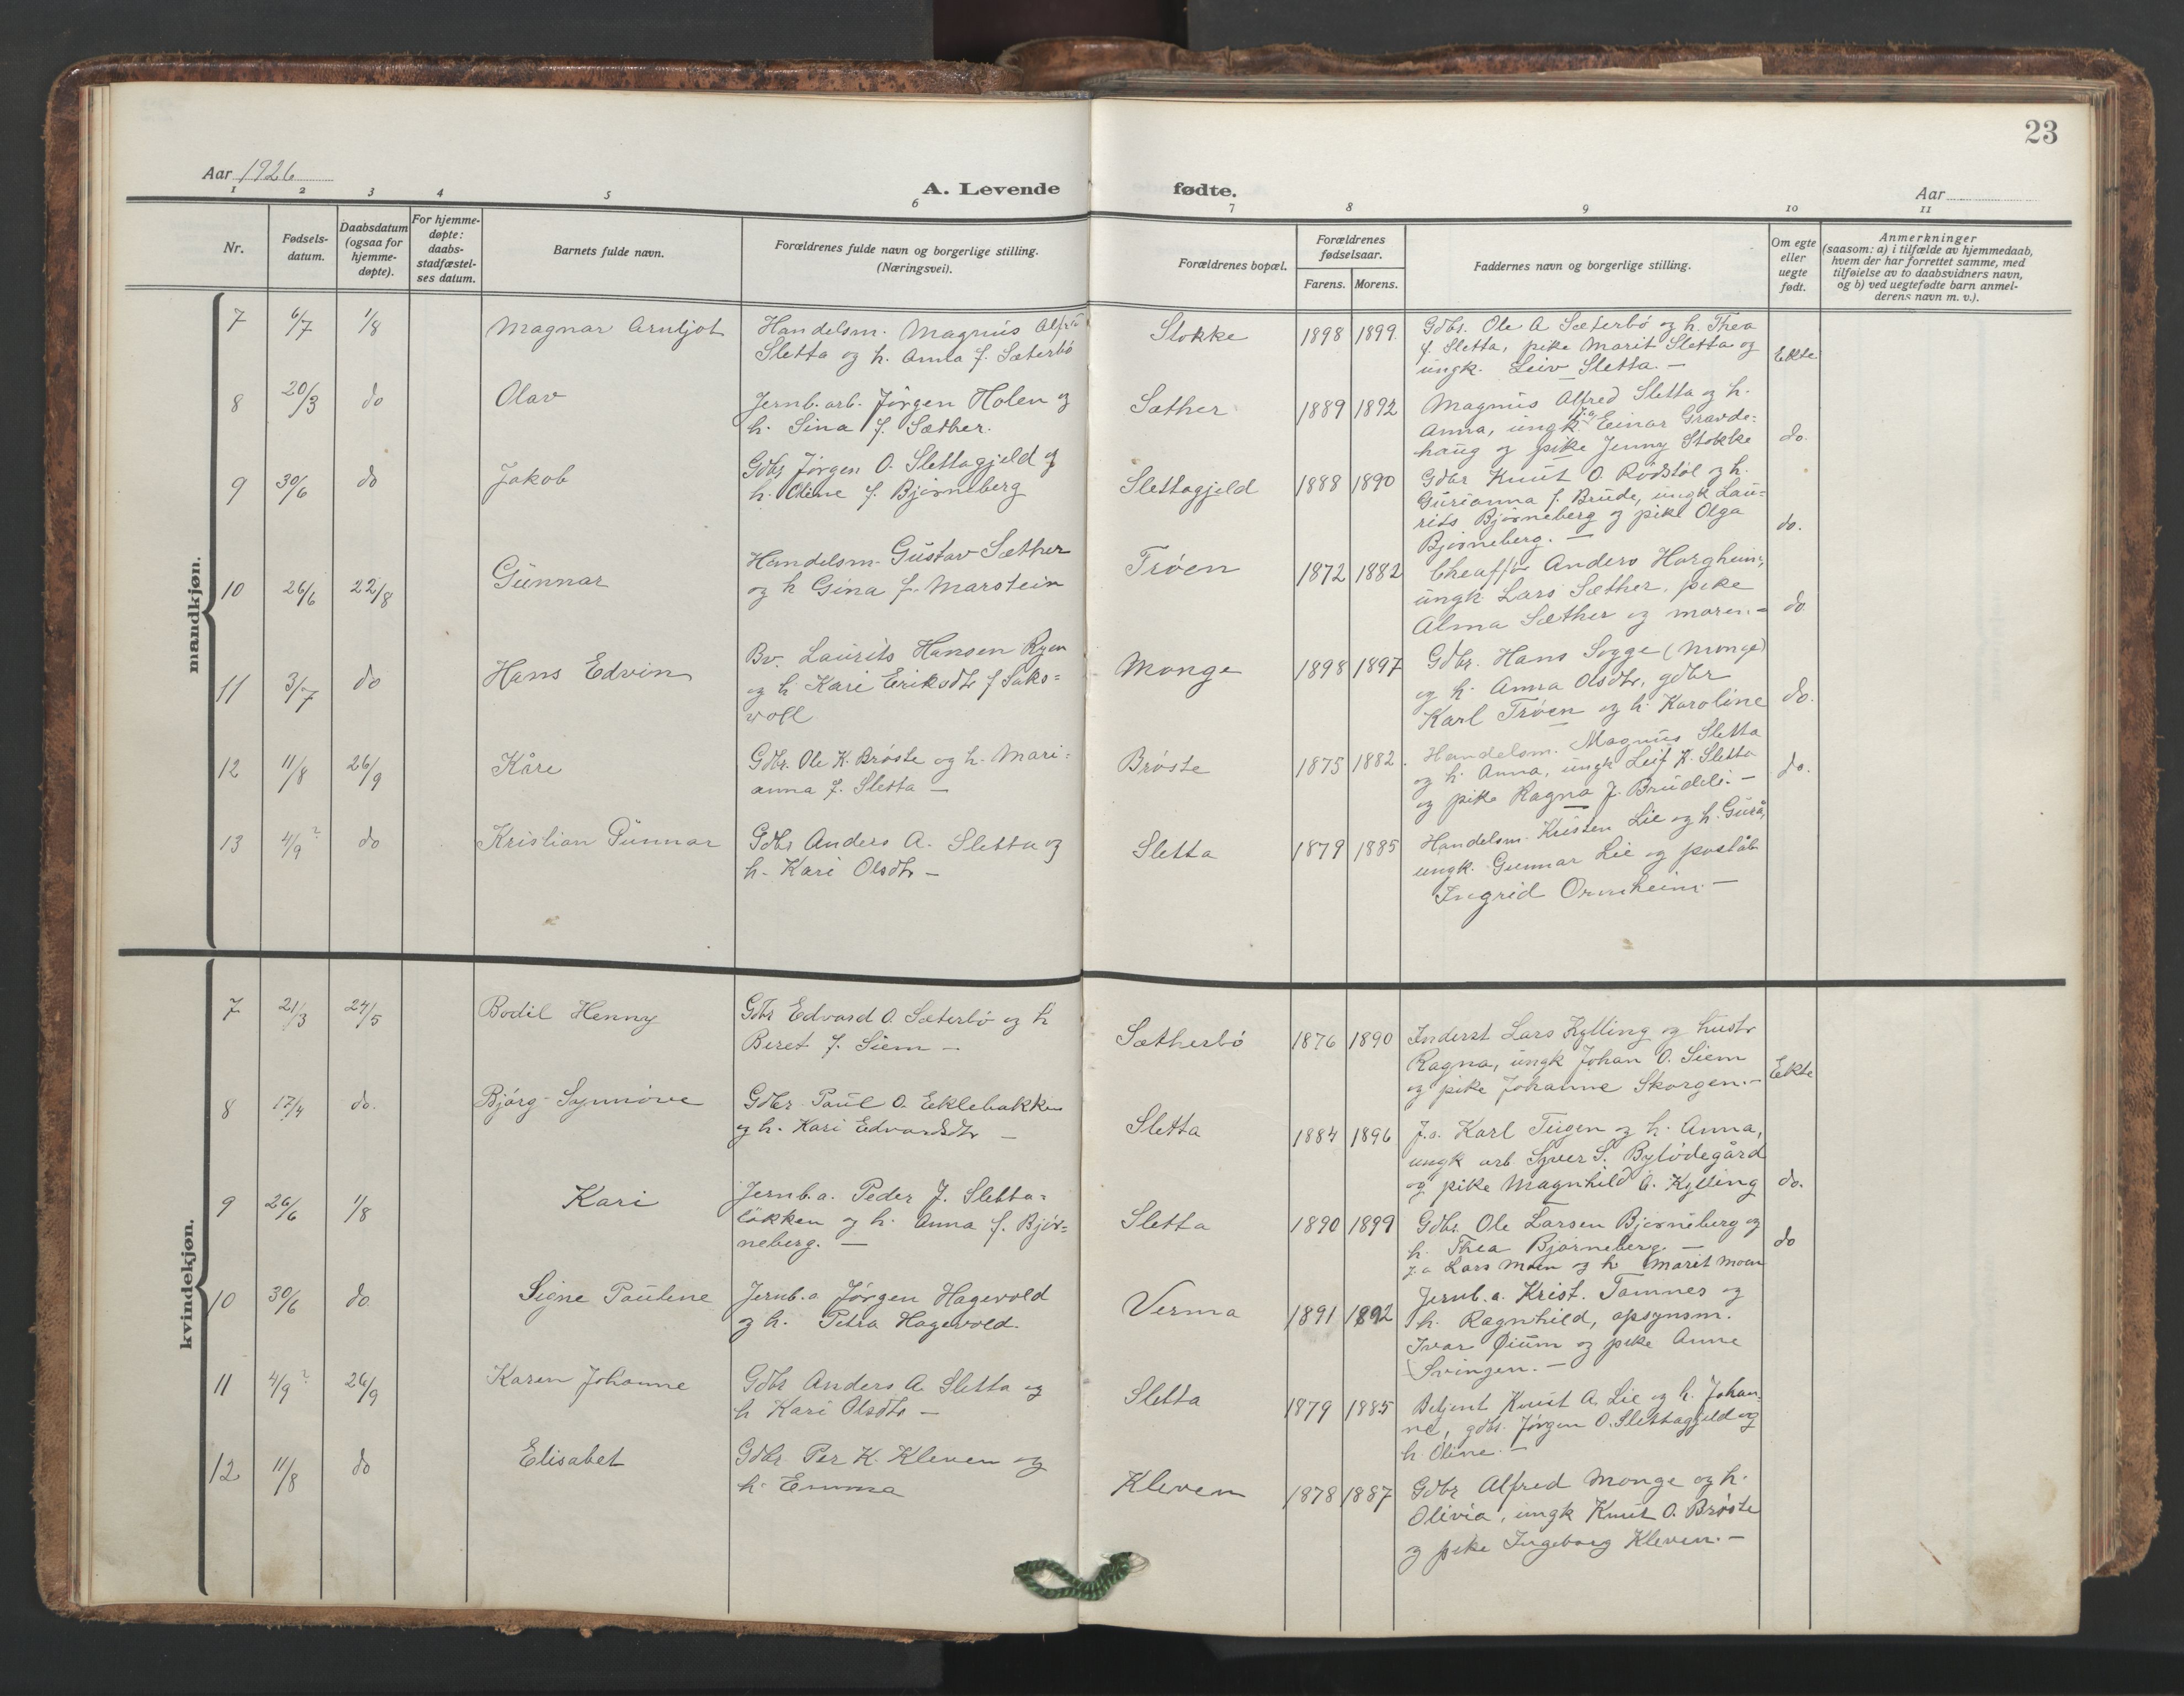 23
Aar 1926
A. Levende fødte.
Aar
1 2 3 4 5 6 7 8 9 10 11
Nr.
Fødsels-
datum.
Daabsdatum
(ogsaa for
hjemme-
døpte).
For hjemme-
døpte:
daabs-
stadfæstel-
ses datum.
Barnets fulde navn.
Forældrenes fulde navn og borgerlige stilling.
(Næringsvei).
Forældrenes bopæl.
Forældrenes
fødselsaar.
Farens. Morens.
Faddernes navn og borgerlige stilling.
Om egte
eller
uegte
født.
Anmerkninger
(saasom: a) i tilfælde av hjemmedaab,
hvem der har forrettet samme, med
tilføielse av to daabsvidners navn,
og b) ved uegtefødte barn anmel-
derens navn m. v.).
mandkjøn.
7 6/7 1/8 Magnar Arnljot
Handelsm. Magnus Alfred
Sletta og h. Anna f. Sæterbö
Stokke 1898 1899
Gdbr. Ole A Sæterbö og h. Thea
f. Sletta, pike Marit Sletta og
ungk. Leiv Sletta. —
Ekte
8 20/3 do Olav
Jernb. arb. Jörgen Holen og
h. Sina f. Sæther.
Sæther 1889 1892
Magnus Alfred Sletta og h.
Anna, ungk. J.a. Einar Gravde-
haug og pike Jenny Stokke
do.
9 30/6 do Jakob
Gdbr Jörgen O. Slettagjeld og
h. Oline f. Bjørneberg
Slettagjeld 1888 1890
Gdbr Knut O. Rödstöl og h.
Gurianna f. Brude, ungk Lau-
rits Bjørneberg og pike Olga
Bjørneberg. —
do.
10 26/6 22/8 Gunnar
Handelsm. Gustav Sæther
og h Gina f. Marstein
Tröen 1872 1882
Cheaffør Anders Horgheim,
ungk. Lars Sæther, pike
Alma Sæther og moren. —
do
11 3/7 do Hans Edvin
Bv. Laurits Hansen Ryen
og h. Kari Eriksdtr f Saks-
voll
Monge 1898 1897
Gdbr. Hans Sogge (Monge)
og h. Anna Olsdtr, gdbr
Karl Tröen og h. Karoline
do.
12 11/8 26/9 Kåre
Gdbr. Ole K. Bröste og h. Mari-
anna f. Sletta —
Bröste 1875 1882
Handelsm. Magnus Sletta
og h. Anna, ungk Leif K. Sletta
og pike Ragna J. Brudeli. —
do.
13 4/9 ? do Kristian Gunnar
Gdbr Anders A. Sletta og
h. Kari Olsdtr —
Sletta 1879 1885
Handelsm. Kristen Lie og h. Gurå,
ungk. Gunnar Lie og poståb
Ingrid Ormheim. —
kvindekjøn.
7 21/3 24/5 Bodil Henny
Gdbr Edvard O. Sæterbö og h
Beret f. Siem —
Sætherbö 1876 1890
Inderst Lars Kylling og hustr
Ragna, ungk Johan O. Siem
og pike Johanne Skorgen. —
Ekte
8 17/4 do. Bjørg Synnöve
Gdbr Paul O. Eeklebakken
og h. Kari Edvardsdtr —
Sletta 1884 1896
J.a. Karl Tugen og h. Anna,
ungk arb Syver S. Bylödegård
og pike Magnhild A. Kylling
do.
9 26/6 1/8 Kari
Jernb.a. Peder J. Sletta-
lökken og h. Anna f. Björ-
neberg. —
Sletta 1890 1899
Gdbr. Ole Larsen Bjørneberg og
h. Thea Bjørneberg. —
J.a Lars Moen og h Marit Moen
do
10 30/6 do Signe Pauline
Jernb.a Jörgen Hagevold
og h. Petra Hagevold.
Verma 1891 1892
Jernb.a. Krist. Tomnes og
h. Ragnhild, opsynsm.
Ivar Øium og pike Anne
Svingen. —
11 4/9 ? 26/9 Karen Johanne
Gdbr Anders A Sletta og
h Kari Olsdtr —
Sletta 1879 1885
Betjent Knut A. Lie og h. Johan-
ne, gdbr. Jörgen O. Slettagjeld og
h. Oline. —
12 11/8 do Elisabet
Gdbr Per K. Kleven og
h. Emma
Kleven 1878 1887
Gdbr Alfred Monge og h.
Olivia, ungk Knut O. Bröste
og pike Ingeborg Kleven. —